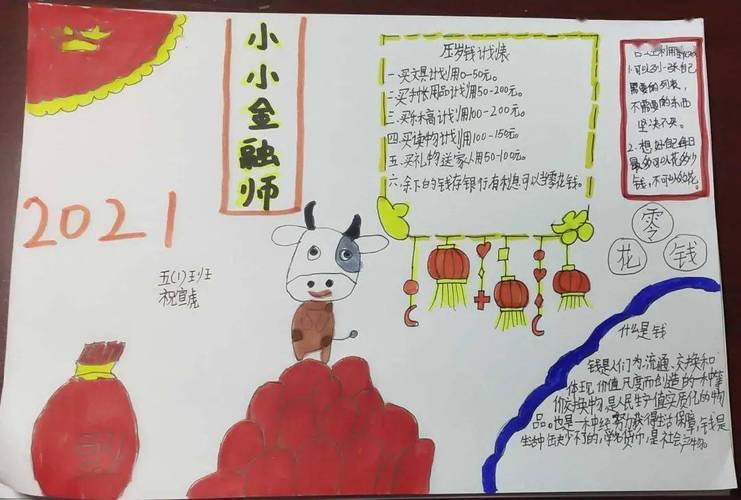 小小金融师
2021
五(1)班
祝宣虎
压岁钱计划表
一.买文具计划用0-50元。
二.买利长用品计划用50-200元。
三.买乐高计划用100-200元。
四.买读物计划用100-150元。
五.买礼物送家人用50-100元。
六.余下白的钱存银行有利息可以当零花钱。
1.可以列一张自己
需要的列表,
不需要的东西
坚决不买。
2.想好自己每日
最多可以花多少
钱,不可以多花。
零
花 钱
什么是钱
钱是人们为流通、交换和
体现价值尺度而创造的一种等
价交换物,是人民生产值实居化的物
品。也是一种经努力获得生活保障,钱是
生活中缺少不了的,学名货币,是社会产物。